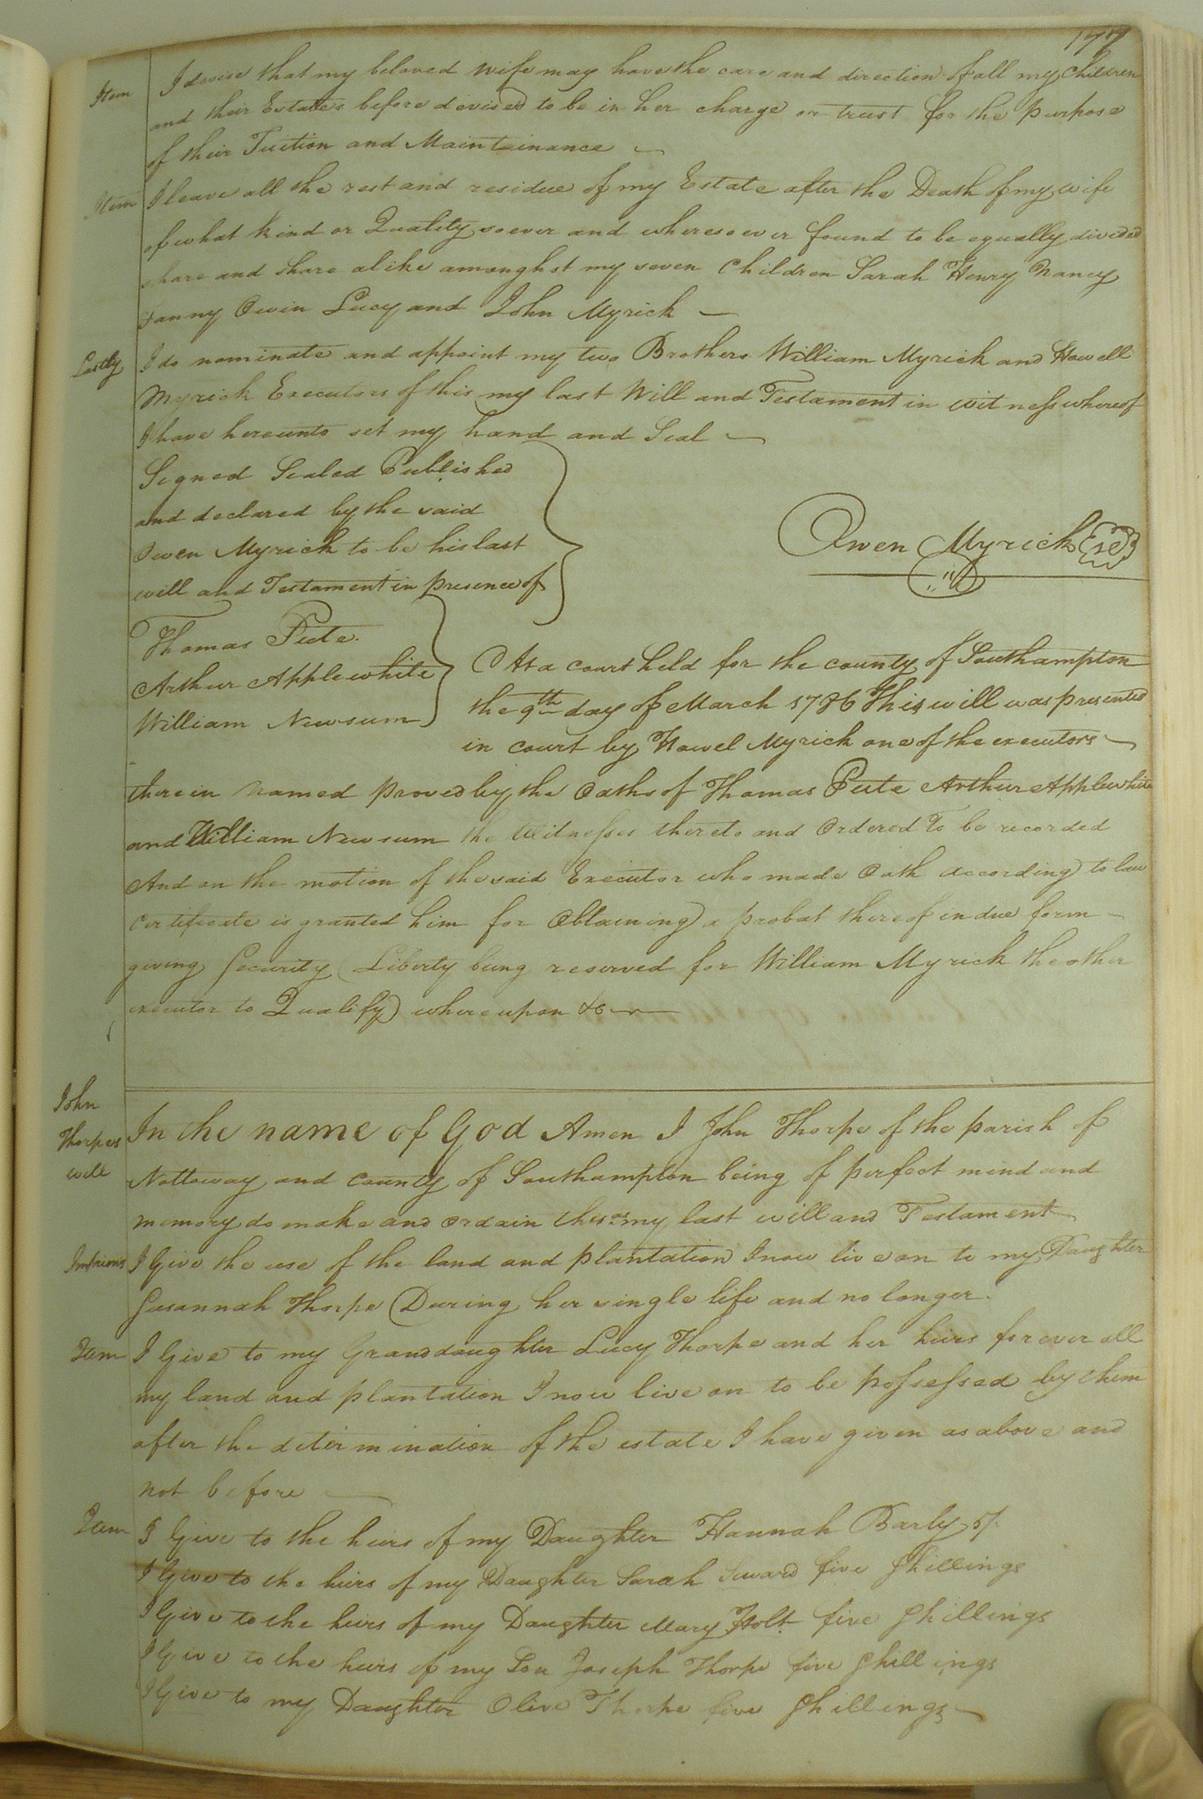 177
Item I desire that my beloved wife may have the care and direction of all my Children
and their Estates before devided to be in her charge or trust for the purpose
of their Tuition and Maintainance
Item I leave all the rest and residue of my Estate after the Death of my wife
of what kind or Quality soever and wheresoever found to be equally divided
share and share alike amonghst my seven Children Sarah Henry Nancy
Fanny Owin Lucy and John Myrick
Lastly I do nominate and appoint my two Brothers William Myrick and Howell
Myrick Executors of this my last Will and Testament in witness whereof
I have hereunto set my hand and Seal
Signed Sealed Published
and declared by the said
Owen Myrick to be his last
will and Testament in presence of
Owen Myrick Seal
Thomas Pete
Arthur Applewhite
William Newsum
At a court held for the county of Southampton
the 9th day of March 1786 This will was presented
in court by Howel Myrick one of the executors
therein named proved by the Oaths of Thomas Pete Arthur Applewhite
and William Newsum the witnesses thereto and Ordered to be recorded
And on the motion of the said Executor who made Oath according to law
certificate is granted him for Obtaining a probat thereof in due form
giving Security (Liberty being reserved for William Myrick the other
executor to Qualify) whereupon &c
John
Thorpes
will
In the name of God Amen I John Thorpe of the parish of
Nottoway and county of Southampton being of perfect mind and
memory do make and ordain this as my last will and Testament
Imprimis I Give the use of the land and plantation I now live on to my Daughter
Susannah Thorpe During her single life and no longer.
Item I Give to my Granddaughter Lucy Thorpe and her heirs forever all
my land and plantation I now live on to be possessed by them
after the determination of the estate I have given as above and
not before
Item I Give to the heirs of my Daughter Hannah Barly 5/.
I Give to the heirs of my Daughter Sarah Seward five Shillings
I Give to the heirs of my Daughter Mary Holt five Shillings
I Give to the heirs of my Son Joseph Thorpe five Shillings
I Give to my Daughter Olive Thorpe five Shillings